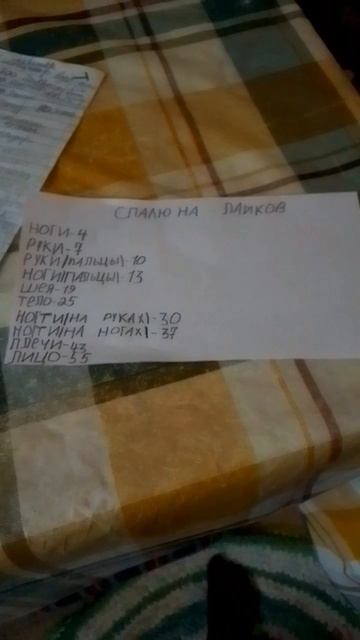 СПАЛЮ НА ЛАЙКОВ
НОГИ-4
РУКИ-7
РУКИ(ПАЛЬЦЫ)-10
НОГИ(ПАЛЬЦЫ)-13
ШЕЯ-19
ТЕЛО-25
НОГТИ(НА РУКАХ)-30
НОГТИ(НА НОГАХ)-37
ПЛЕЧИ-43
ЛИЦО-55